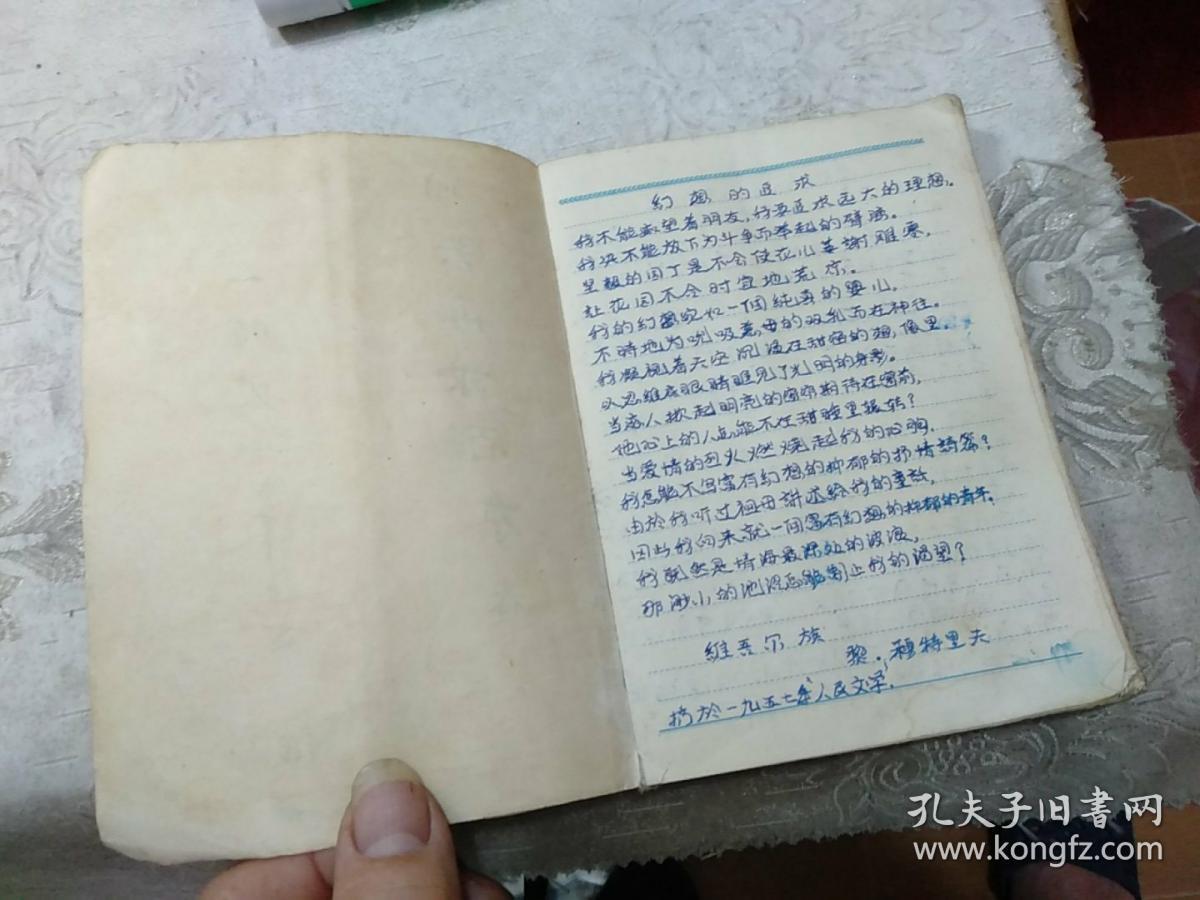 幻想的追求
我不能敷望着朋友,我要追求远大的理想。
我决不能放下为斗争而举起的臂膀。
坚毅的园丁是不会使花儿萎謝难察,
让花园不会时宜地荒凉。
我的幻想宛如一個純真的婴儿,
不時地为吮吸慈母的双乳而在神往。
我凝視着天空沉浸在甜密的想像里,
以思维底眼睛瞧見了光明的身影。
当恋人掀起明亮的窗帘期待在窗前,
他心上的人怎能不在甜睡里輾转?
当爱情的烈火燃烧起我的心胸,
我怎能不写富有幻想的抑郁的抒情詩篇?
由於我听过祖母講述給我的童話,
因此我向来就一個富有幻想的抑郁的青年。
我既然是情海最深处的波浪,
那渺小的池沼怎能制止我的渴望?
維吾尔族
黎.穆特里夫
摘於一九五七年"人民文学"
孔夫子旧書网
www.kongfz.com